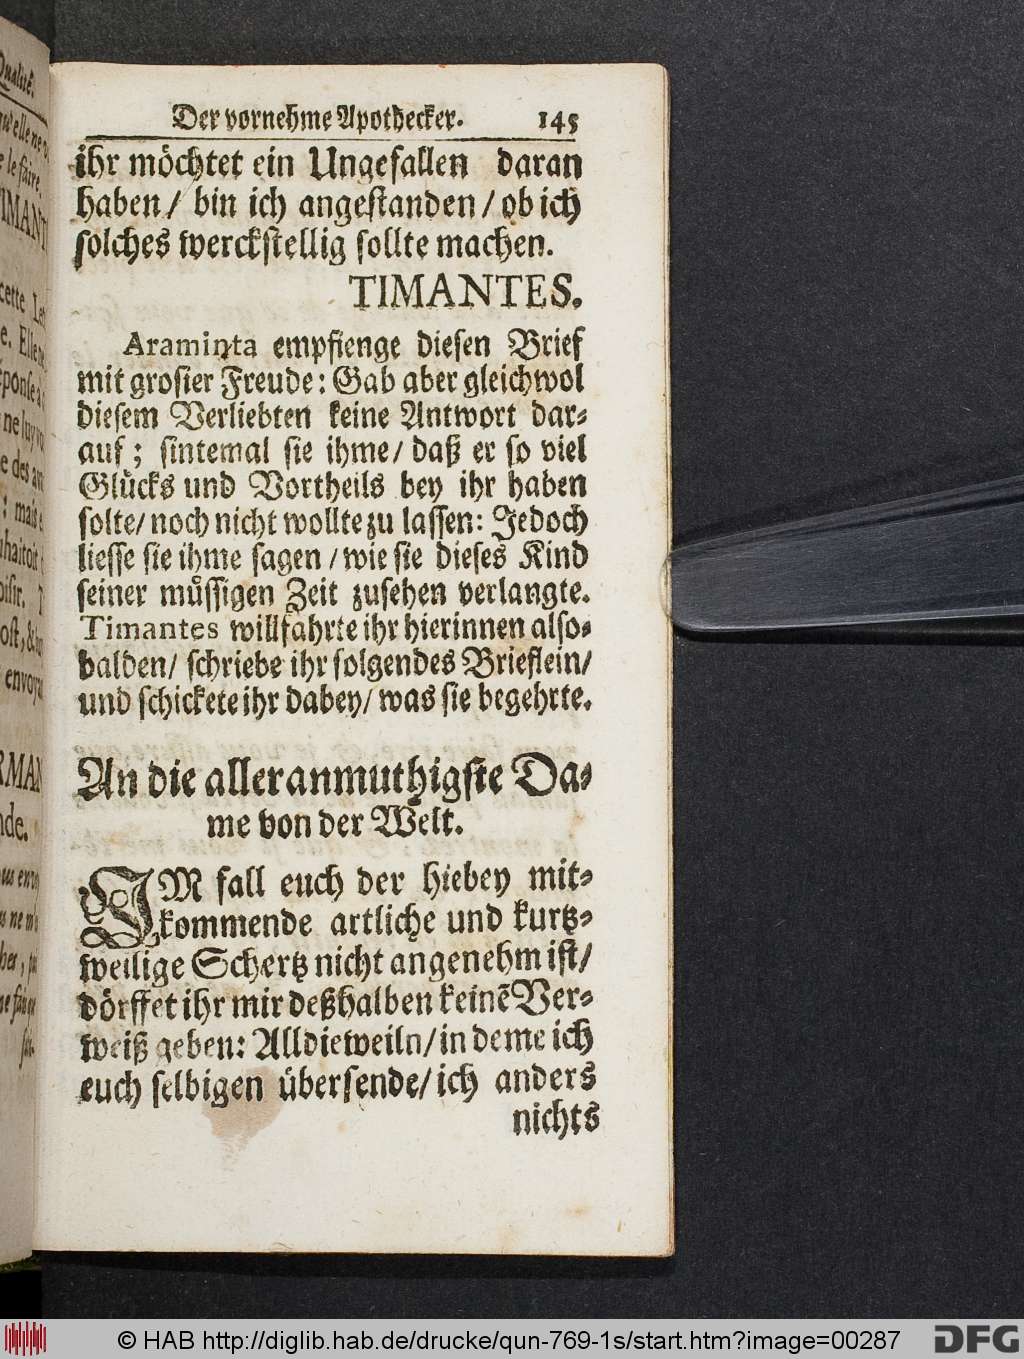 Der vornehme Apothecker. 145
ihr möchtet ein Ungefallen daran
haben/ bin ich angestanden / ob ich
solches werckstellig sollte machen.
TIMANTES.
Araminta empfienge diesen Brief
mit grosser Freude: Gab aber gleichwol
diesem Verliebten keine Antwort dar-
auf; sintemal sie ihme/ daß er so viel
Glücks und Vortheils bey ihr haben
solte/ noch nicht wollte zu lassen: Jedoch
liesse sie ihme sagen / wie sie dieses Kind
seiner müssigen Zeit zusehen verlangte.
Timantes willfahrte ihr hierinnen also-
balden/ schriebe ihr folgendes Brieflein/
und schickete ihr dabey/ was sie begehrte.
An die alleranmuthigste Da-
me von der Welt.
IM fall euch der hiebey mit-
kommende artliche und kurtz-
weilige Schertz nicht angenehm ist/
dörffet ihr mir deßhalben keinē Ver-
weiß geben: Alldieweiln/ in deme ich
euch selbigen übersende/ ich anders
nichts
Qualité.
qu'elle ne
le faire,
TIMANT
cette Let
e. Elle ne
éponse à
ne luy
e des
: mais
uhaitoit
oisir. T
ost, &
envoya
RMAN
nde.
ous envoy
© HAB http://diglib.hab.de/drucke/qun-769-1s/start.htm?image=00287
DFG